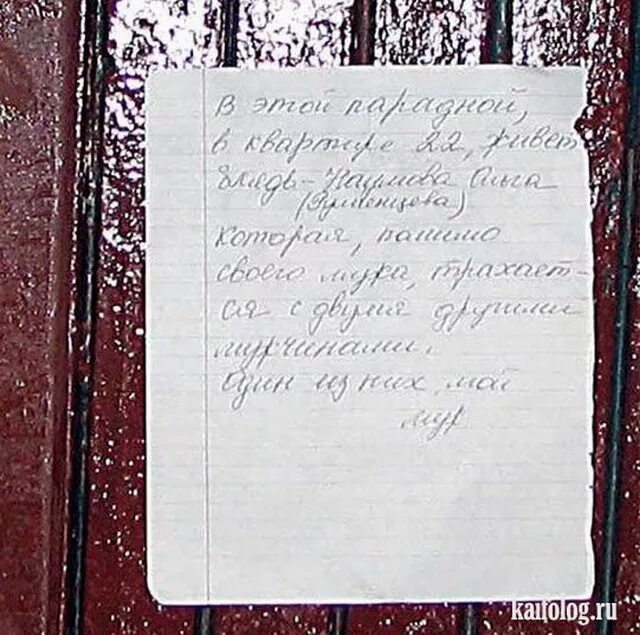 В этой парадной,
в квартире 22, живет
блядь - Наумова Ольга
(Румянцева)
которая, помимо
своего мужа, трахает-
ся с двумя другими
мужчинами.
Один из них, мой
муж
kaifolog.ru